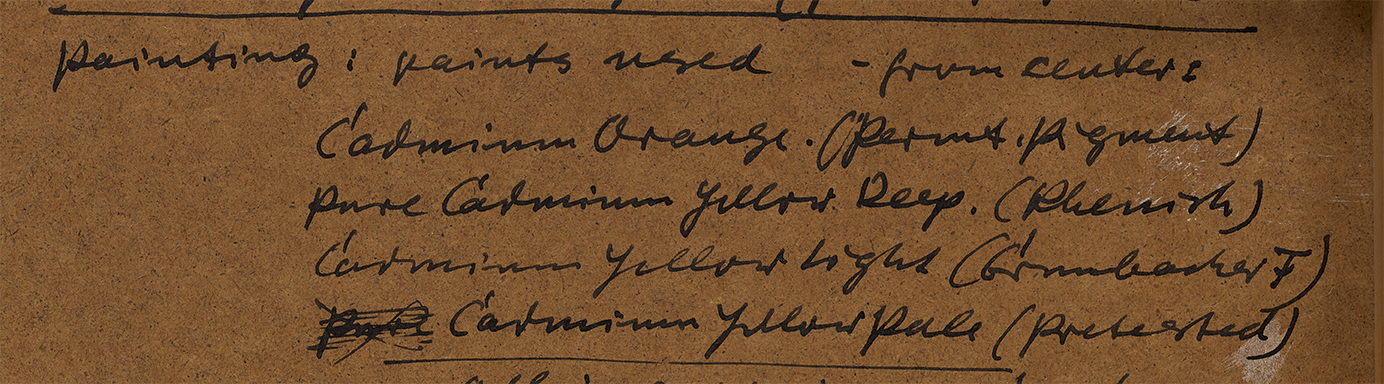 painting: paints used - from center:
Cadmium Orange. (Permt. Pigment)
pure Cadmium Yellow Deep. (Rhenish)
Cadmium Yellow Light (Grumbacher F)
Cadmium Yellow Pale (Pretested)